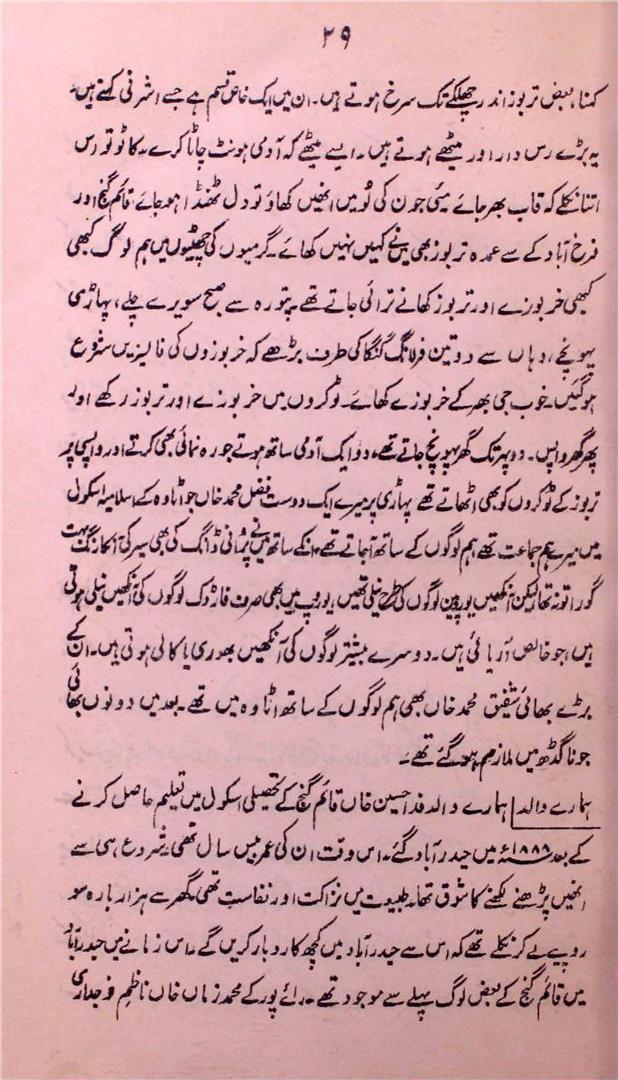 ۳۹
کہنا، بعض تربوز اندر چھلکے تک سرخ ہوتے ہیں۔ ان میں ایک خاص قسم ہے جسے اشرفی کہتے ہیں۔
یہ بڑے رس دار اور میٹھے ہوتے ہیں۔ ایسے میٹھے کہ آدمی ہونٹ چاٹا کرے۔ کاٹو تو رس
اتنا نکلے کہ قاب بھر جائے مئی جون کی لُو میں انھیں کھاؤ تو دل ٹھنڈا ہو جائے قائم گنج اور
فرخ آباد کے سے عمدہ تربوز بھی میں نے کہیں نہیں کھائے۔ گرمیوں کی چھٹیوں میں ہم لوگ کبھی
کبھی خربوزے اور تربوز کھانے ترائی جاتے تھے۔ پتورہ سے صبح سویرے چلے، پہاڑی
پہونچے، وہاں سے دو تین فرلانگ گنگا کی طرف بڑھے کہ خربوزوں کی فالیزیں شروع
ہو گئیں۔ خوب جی بھر کے خربوزے کھائے۔ ٹوکروں میں خربوزے اور تربوز رکھے اور
پھر گھر واپس۔ دوپہر تک گھر پہونچ جاتے تھے۔ دو ایک آدمی ساتھ ہوتے جو رہ نمائی بھی کرتے اور واپسی پر
تربوز کے ٹوکروں کو بھی اٹھاتے تھے پہاڑی پر میرے ایک دوست فضل محمد خاں جو اٹاوہ کے اسلامیہ اسکول
میں میرے ہم جماعت تھے ہم لوگوں کے ساتھ آجاتے تھے۔ انکے ساتھ میں نے پُرانی ڈانگ کی بھی سیر کی۔ انکا رنگ بہت
گورا تو نہ تھا لیکن آنکھیں یورپین لوگوں کی طرح نیلی تھیں، یوروپ میں بھی صرف نارڈک لوگوں کی آنکھیں نیلی ہوتی
ہیں، جو خالص آریائی ہیں۔ دوسرے بیشتر لوگوں کی آنکھیں بھوری یا کالی ہوتی ہیں۔ ان کے
بڑے بھائی شفیق محمد خاں بھی ہم لوگوں کے ساتھ اٹاوہ میں تھے۔ بعد میں دونوں بھائی
جونا گڈھ میں ملازم ہو گئے تھے۔
ہمارے والد ہمارے والد فدا حسین خاں قائم گنج کے تحصیلی اسکول میں تعلیم حاصل کرنے
کے بعد ۱۸۸۸ء میں حیدر آباد گئے۔ اس وقت ان کی عمر بیس سال تھی، شروع ہی سے
انھیں پڑھنے لکھنے کا شوق تھا۔ طبیعت میں نزاکت اور نفاست تھی۔ گھر سے ہزار بارہ سو
روپیے لے کر نکلے تھے کہ اس سے حیدر آباد میں کچھ کاروبار کریں گے۔ اس زمانے میں حیدر آباد
میں قائم گنج کے بعض لوگ پہلے سے موجود تھے۔ رائے پور کے محمد زماں خاں ناظم فوجداری